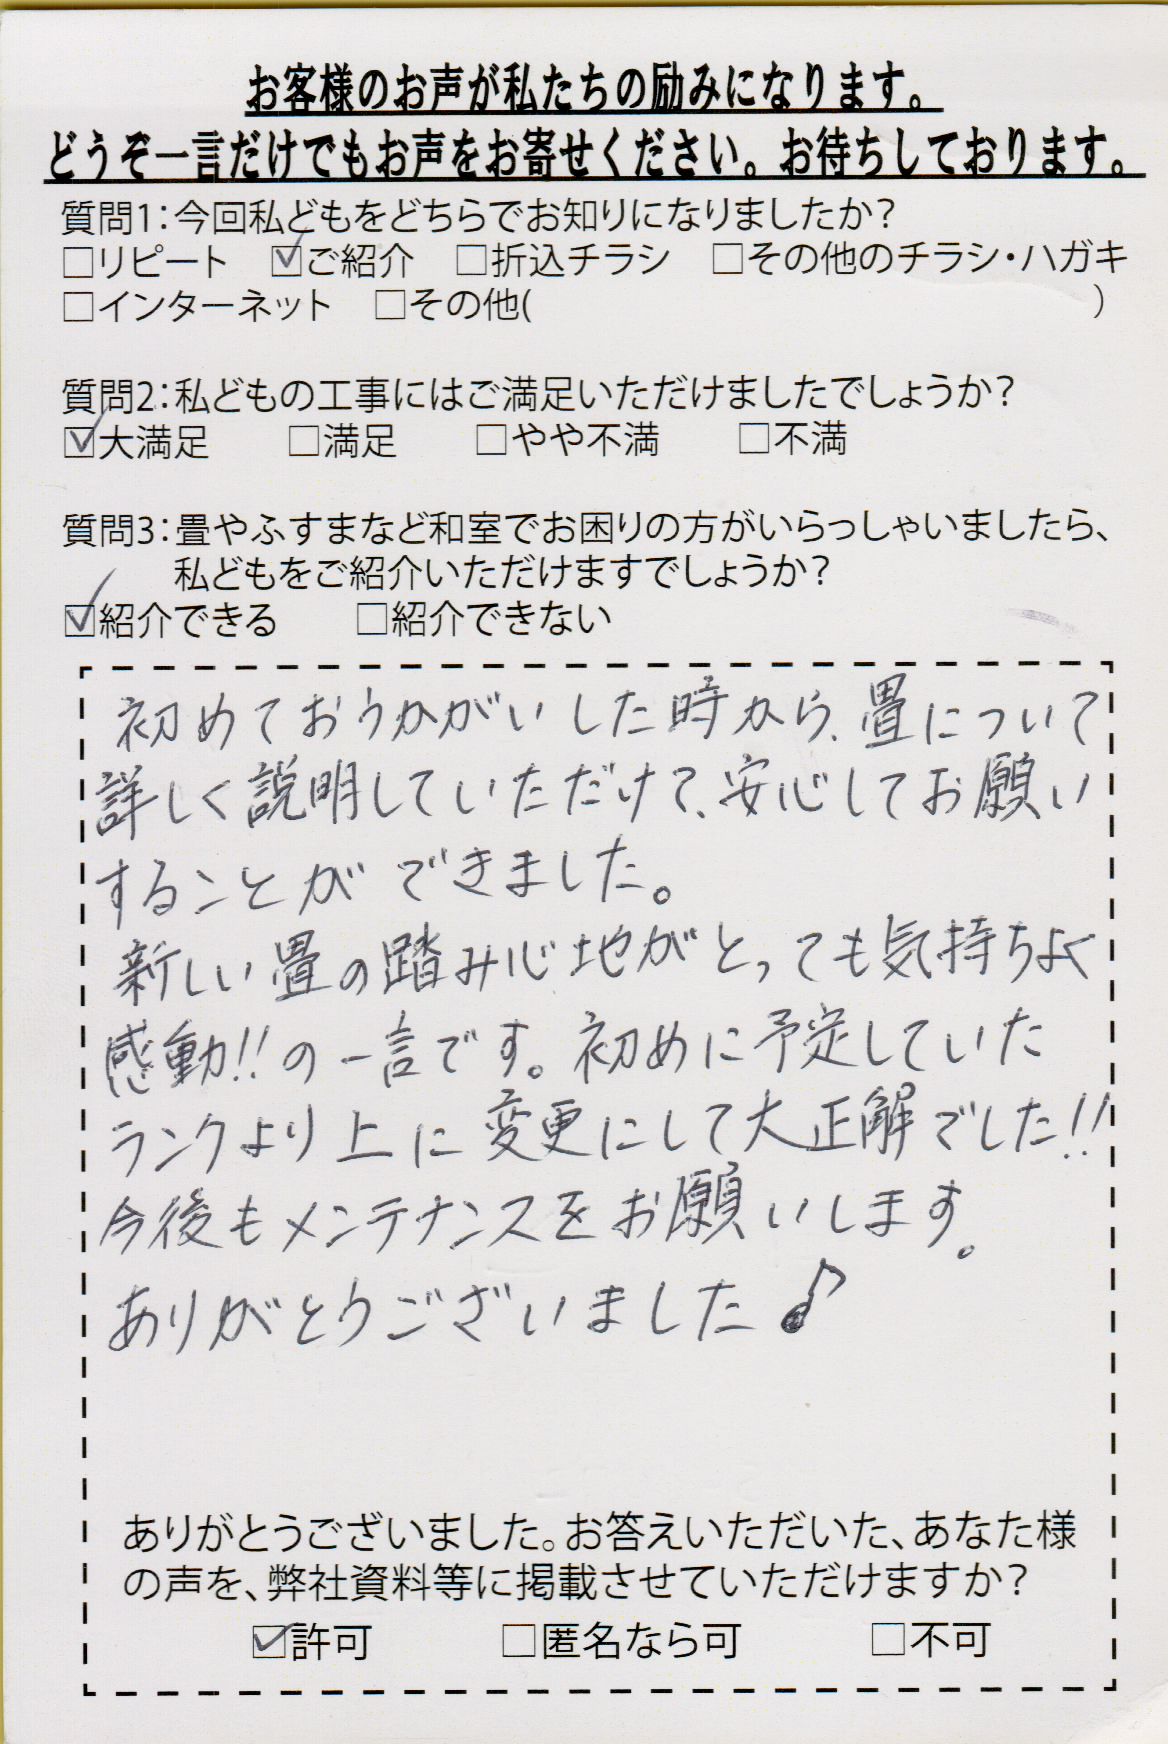 お客様のお声が私たちの励みになります。
どうぞ一言だけでもお声をお寄せください。お待ちしております。
質問1:今回私どもをどちらでお知りになりましたか?
□リピート ☑ご紹介 □折込チラシ □その他のチラシ・ハガキ
□インターネット □その他( )
質問2:私どもの工事にはご満足いただけましたでしょうか?
☑大満足 □満足 □やや不満 □不満
質問3:畳やふすまなど和室でお困りの方がいらっしゃいましたら、
私どもをご紹介いただけますでしょうか?
☑紹介できる □紹介できない
初めておうかがいした時から、畳について
詳しく説明していただけて、安心してお願い
することができました。
新しい畳の踏み心地がとっても気持ちよく
感動!!の一言です。初めに予定していた
ランクより上に変更にして大正解でした!!
今後もメンテナンスをお願いします。
ありがとうございました♪
ありがとうございました。お答えいただいた、あなた様
の声を、弊社資料等に掲載させていただけますか?
☑許可 □匿名なら可 □不可